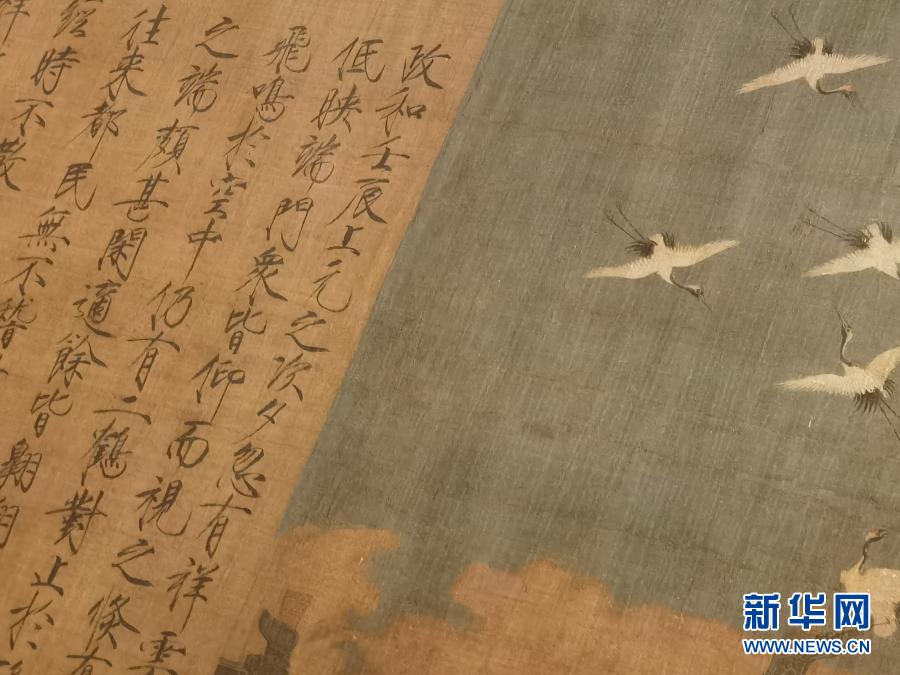 政和壬辰上元之次夕忽有祥雲
低映端門衆皆仰而視之倏有
飛鳴於空中仍有二鶴對止於
之端頗甚閑適餘皆翱翔
往來都民無不稽
時不散
新华网
WWW.NEWS.CN